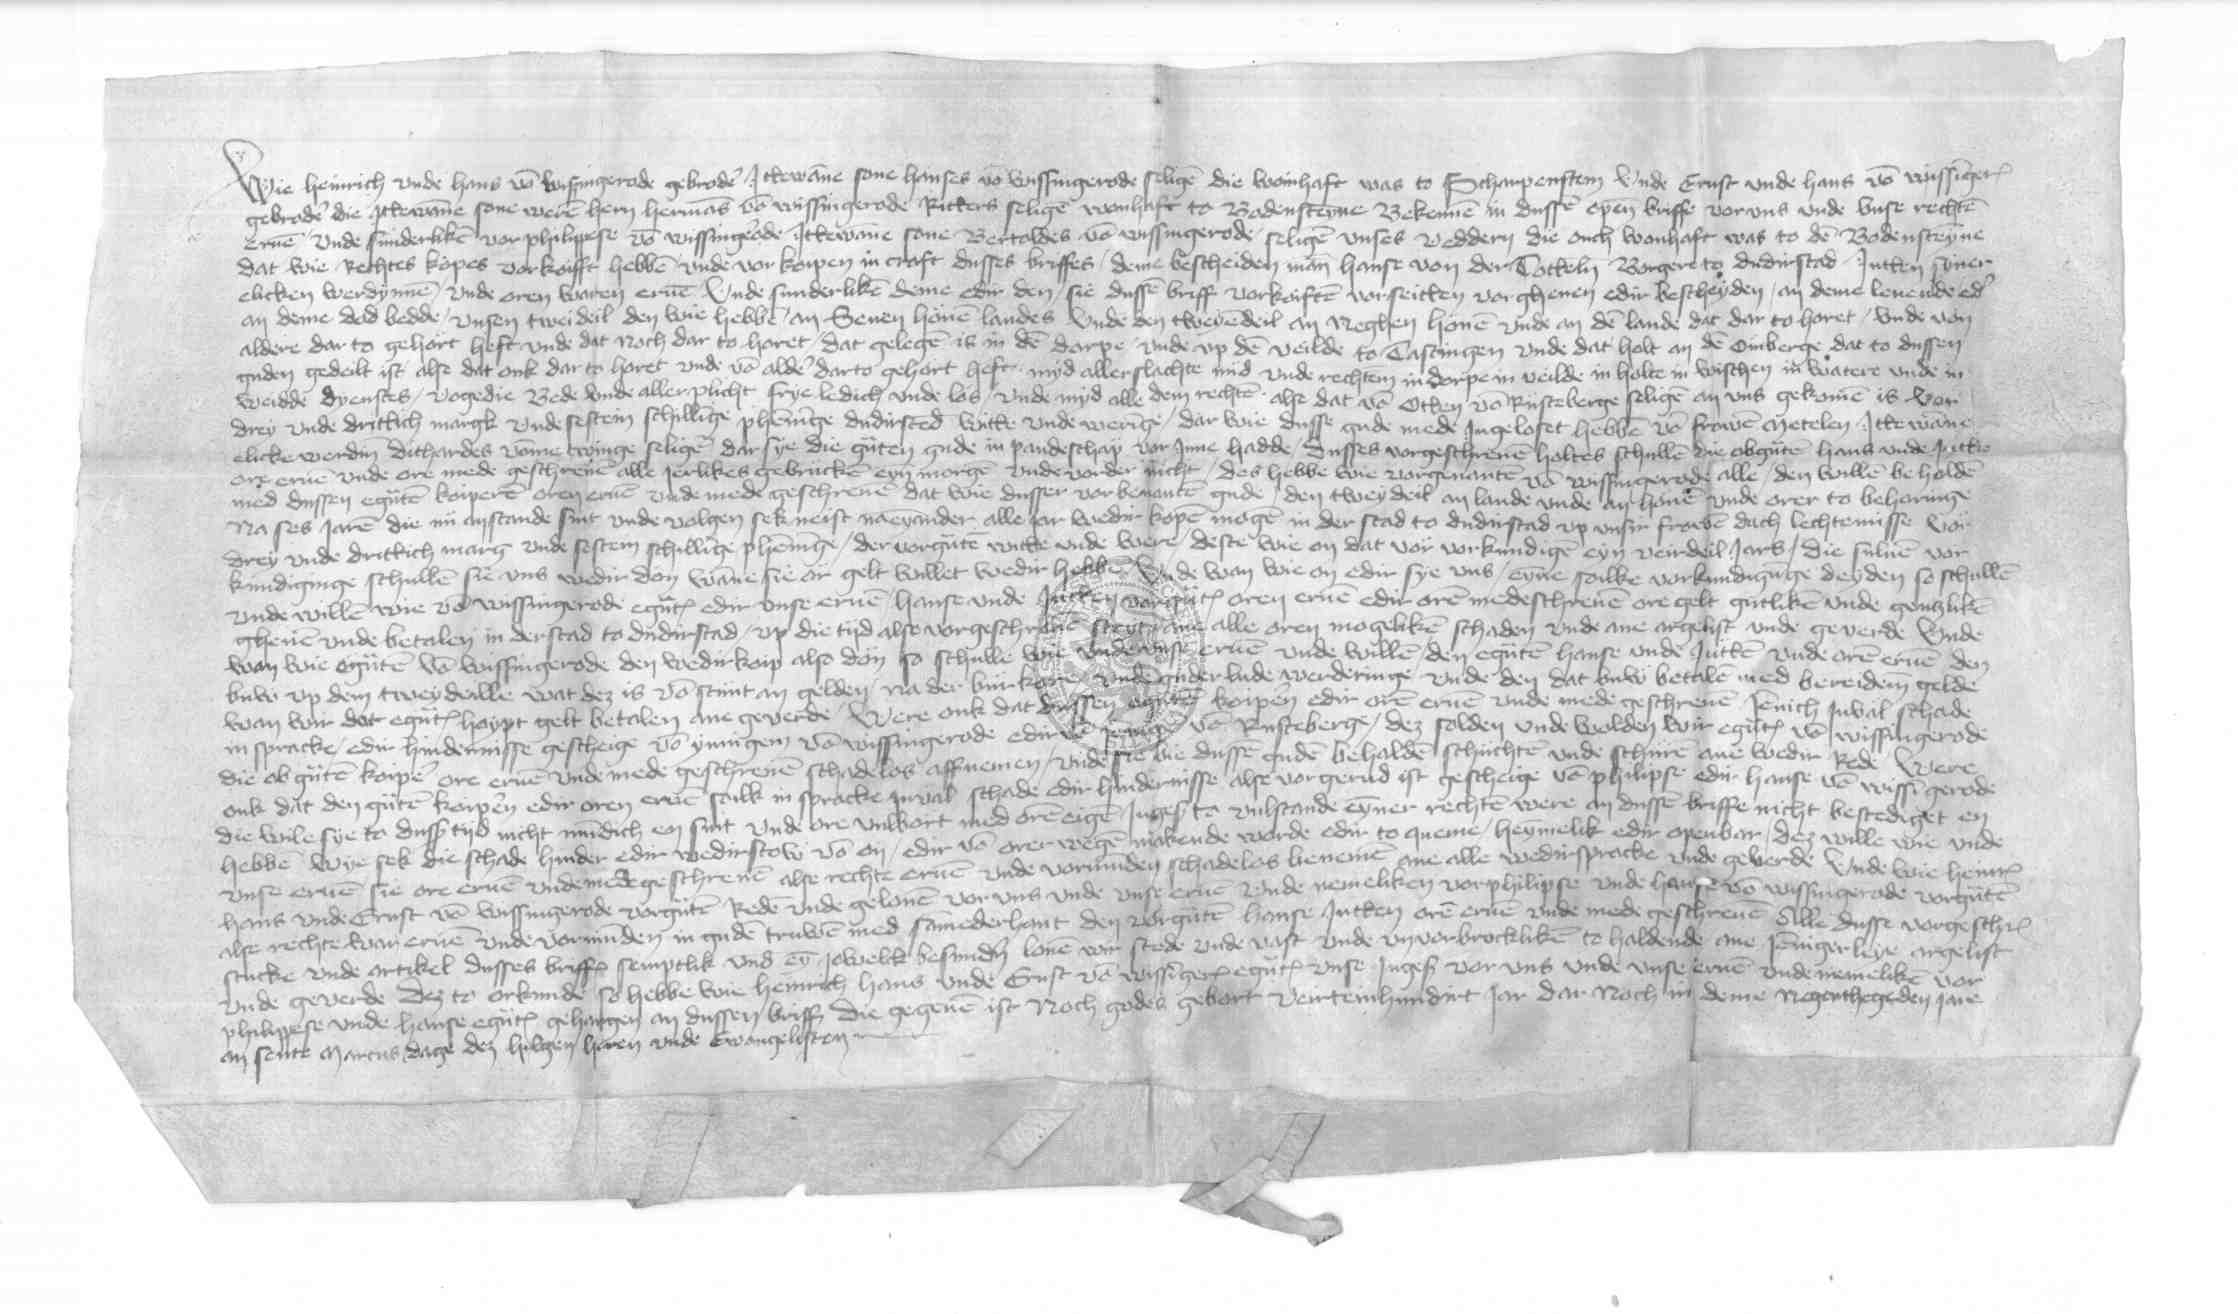 Wie heinrich vnde hans vō wissingerode gebrodē Ittewāne sone hanses vō wissingerode seligē die wonhaft was to Scharpenstein Vnde Ernst vnde hans vō wissinger
gebrodē die Ittewāne sone werē hern hermās vō wissingerode Ritters seligē wonhaft to Bodensteyne Bekennē in dussē opēn briffe vor vns vnde vnse rechtē
eruē vnde sunderlikē vor philippese vō wissingerode Ittewāne sone Bertoldes vō wissingerode seligē vnses veddern die ouch wonhaft was to dē Bodensteyne
dat wie Rechtes kopes vorkoifft hebbē vnde vorkoipen in craft dusses briffes deme bescheiden mān hanse von der Totteln Borgere to dudirstad Jutten syner
elicken werdynnē vnde oren waren eruē Vnde sunderlikē deme edir den sie dussē briff vorkoiftē vorseitten vorghenen edir bescheyden an deme leuende edʾ
an deme dod bedde vnsen twei deil den wie hebbē an Seuen houē landes Vnde den tweydeil an Neghen houē vnde an dē lande dat dar to horet vnde von
aldere dar to gehort heft vnde dat noch dar to horet dat gelegē is in dē dorpe vnde vp dē veilde to Tastingen vnde dat holt an dē Omberge dat to dussen
guden gedeilt ist alse dat ouk dar to horet vnde vō aldē darto gehort heft myd allerslachte nud vnde rechtem in dorpe in veilde in holte in wischen in watere vnde in
weidde dyenstes vogedie Bede vnde aller plicht frye ledich vnde los vnde myd alle dem rechtē alse dat vō Otten vō Rusteberge seligē an vns gekomē is Vor
drey vnde drittich margk vnde sestein schillīge phēnīge dudirsted witte vnde werīge dar wie dusse gude mede Ingeloset hebbē vō frowen Metelen Ittewāne
elicke werdīn dithardes vōme winge seligē dar sye die guten gude in pandeschap vor Inne hadde dusses vorgeschreuē holtes schullē die obgutē hans vnde Jutte
ore eruē vnde ore mede geschreuē alle Jerlikes gebrucken eyn morgē vnde vorder nicht des hebbe wie vorgenantē vō wissingerode alle den willē beholdē
med dussen egutē koiperē oren eruē vnde mede geschreuē dat wie dusser vorbenantē gude den tweydeil an lande vnde an houē vnde orer to behoringe
Na ses Jarē die nū anstande sint vnde volgen sek neist naeynāder alle Jar wedir kopē mogē in der stad to dudirstad vp vnsir frowē dach lechtemisse Vor
drey vnde drittich marg vnde sestein schillīge phēnīge der vorgutē witte vnde were deste wie on dat vor vorkundigē eyn veirdeil Jars die suluē vor
kundiginge schullē sie vns wedir don wāne sie or gelt willet wedir hebbē Vnde wan wie on edir sye vns eyne soilke vorkundigūge deyden so schullē
vnde willē wie vō wissingerode egut edir vnse eruē hanse vnde Jutten vorgut oren eruē edir orē medeschreuē ore gelt gutlikē vnde gentzlikē
gheuē vnde betalen in der stad to dudirstad vp die tijd alse vorgeschreuē steyt ane alle oren mogelikē schaden vnde ane argelist vnde geverde Vnde
wan wie egutē vō wissingerode den wedirkoip also don so schulle wie vnde vnse eruē vnde willē den egutē hanse vnde Juttē vnde orē eruē den
buw vp dem tweydeille wat dez is vō stūnt an gelden na der burkore vnde guder lude werderinge vnde den dat buw betalē med bereidem gelde
wan wir dat egut hoypt gelt betalen ane geverde Were ouk dat dussen egutē koipen edir orē eruē vnde mede geschreuē Jēnich Inval schade
in spracke edir hindernisse gescheige vō ymingem vō wissingerode edir vō vō Rusteberge dez solden vnde wolden wir egut vō wissingerode
die ob gutē koipē ore eruē vnde mede geschreuē schadelos affnemen vnde sie bie dussē gudē behaldē schuchtē vnde schurē ane wedir Rede Were
ouk dat den gutē koipen edir oren eruē soilk in spracke inval schade edir hindernisse alse vorgerud ist gescheige vō philipse edir hanse vō wissīgerode
die wile sye to duss tijd nicht mūdich en sint vnde ore vulbort med orē eigē Inges to vulstande eyner rechtē were an dussē briffe nicht bestediget en
hebbē Wye sek die schade hinder edir wedirstow vō on edir vō orer wegē makende worde edir to queme heymelik edir openbar dez wille wie vnde
vnse eruē sie ore eruē vnde mede geschreuē alse rechte eruē vnde vormūden schadelos benemē ane alle wedirspracke vnde geverde Vnde wie heinr
hans vnde Ernst vō wissingerode vorgutē Redē vnde gelouē vor vns vnde vnse eruē Vnde nemeliken vor philipse vnde hanse vō wissingerode vorgutē
alse rechte war eruē vnde vormūnden in gudē truwē med samēderhant den vorgutē hanse Jutten orē eruē vnde mede geschreuē Alle dusse vorgeschr
stucke vnde artikel dusses briff semptlik vnd eȳ jowelk besundn louē wir stede vnde vast vnde vnvorbrocklikē to haldende ane Jēnigerleye argelist
vnde geverde Dez to orkunde so hebbe wie heinrich hans vnde Ernst vō wissīger egut vnse Inges vor vns vnde vnse eruē vnde nemelikē vor
philippese vnde hanse egut gehangen an dussen briff Die gegeuē ist Noch godes gebort veirteinhundirt Jar dar Noch in deme Jare
an sente Marcus dage dez hilgen heren vnde Ewangelisten